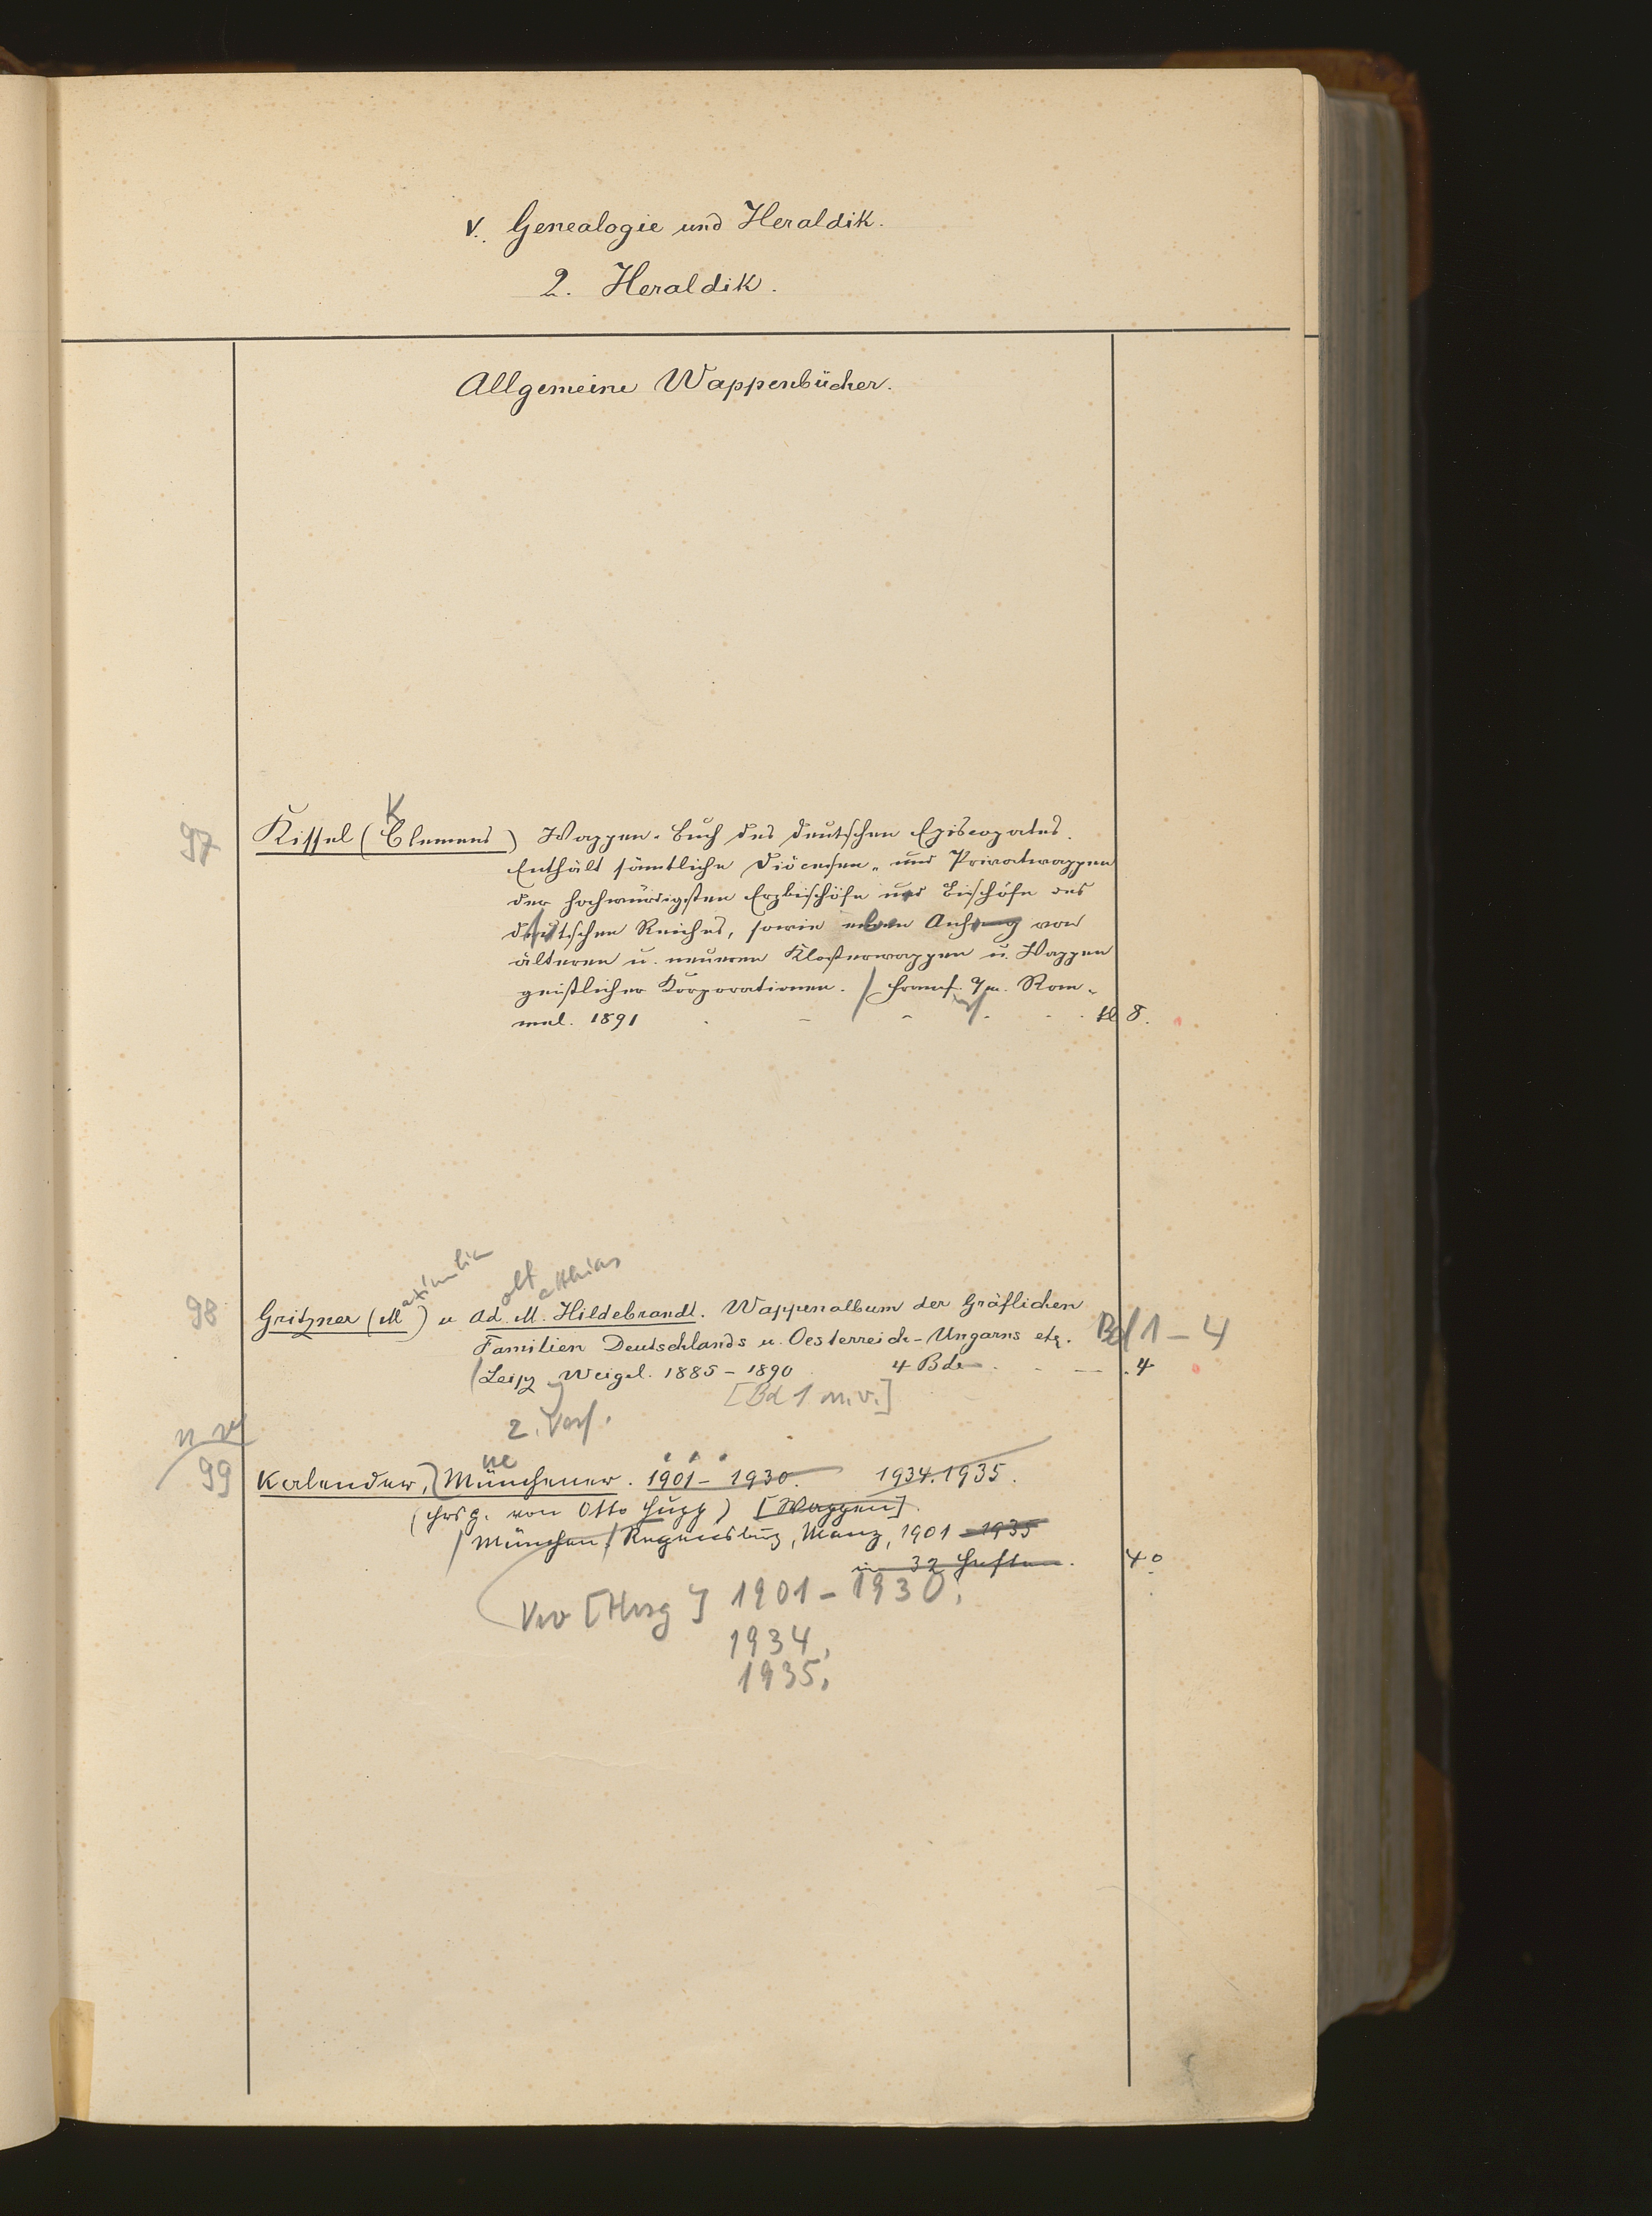 V. Genealogie und Heraldik.
2. Heraldik.
Allgemeine Wappenbücher.
K
97 Kissel (Clemens) Wappen-Buch des deutschen Episcopates.
Enthält sämtliche Diöcesen- und Privatwappen
der hochwürdigsten Erzbischöfe und Bischöfe des
deutschen Reiches, sowie Anhang von
älteren u. neueren Klosterwappen u. Wappen
geistlicher Korporationen. / Frankf. a/m. Rom-
mel. 1891 8.
aximilian olf atthias
98 Gritzner (M) u Ad. M. Hildebrandt. Wappenalbum der Gräflichen
Familien Deutschlands u. Oesterreich-Ungarns etc. Bd 1-4
/Leipz Weigel. 1885-1890 4 Bde 4
[Bd 1 m.v.]
2. Verf.
ne
99 Kalender, Münchener. 1901-1930. 1934.1935.
(hrsg. von Otto Hupp) [Wappen].
/München/Regensburg, Manz, 1901-1935
in 32 Heften. 4°
[Hrsg] 1901-1930.
1934,
1935.